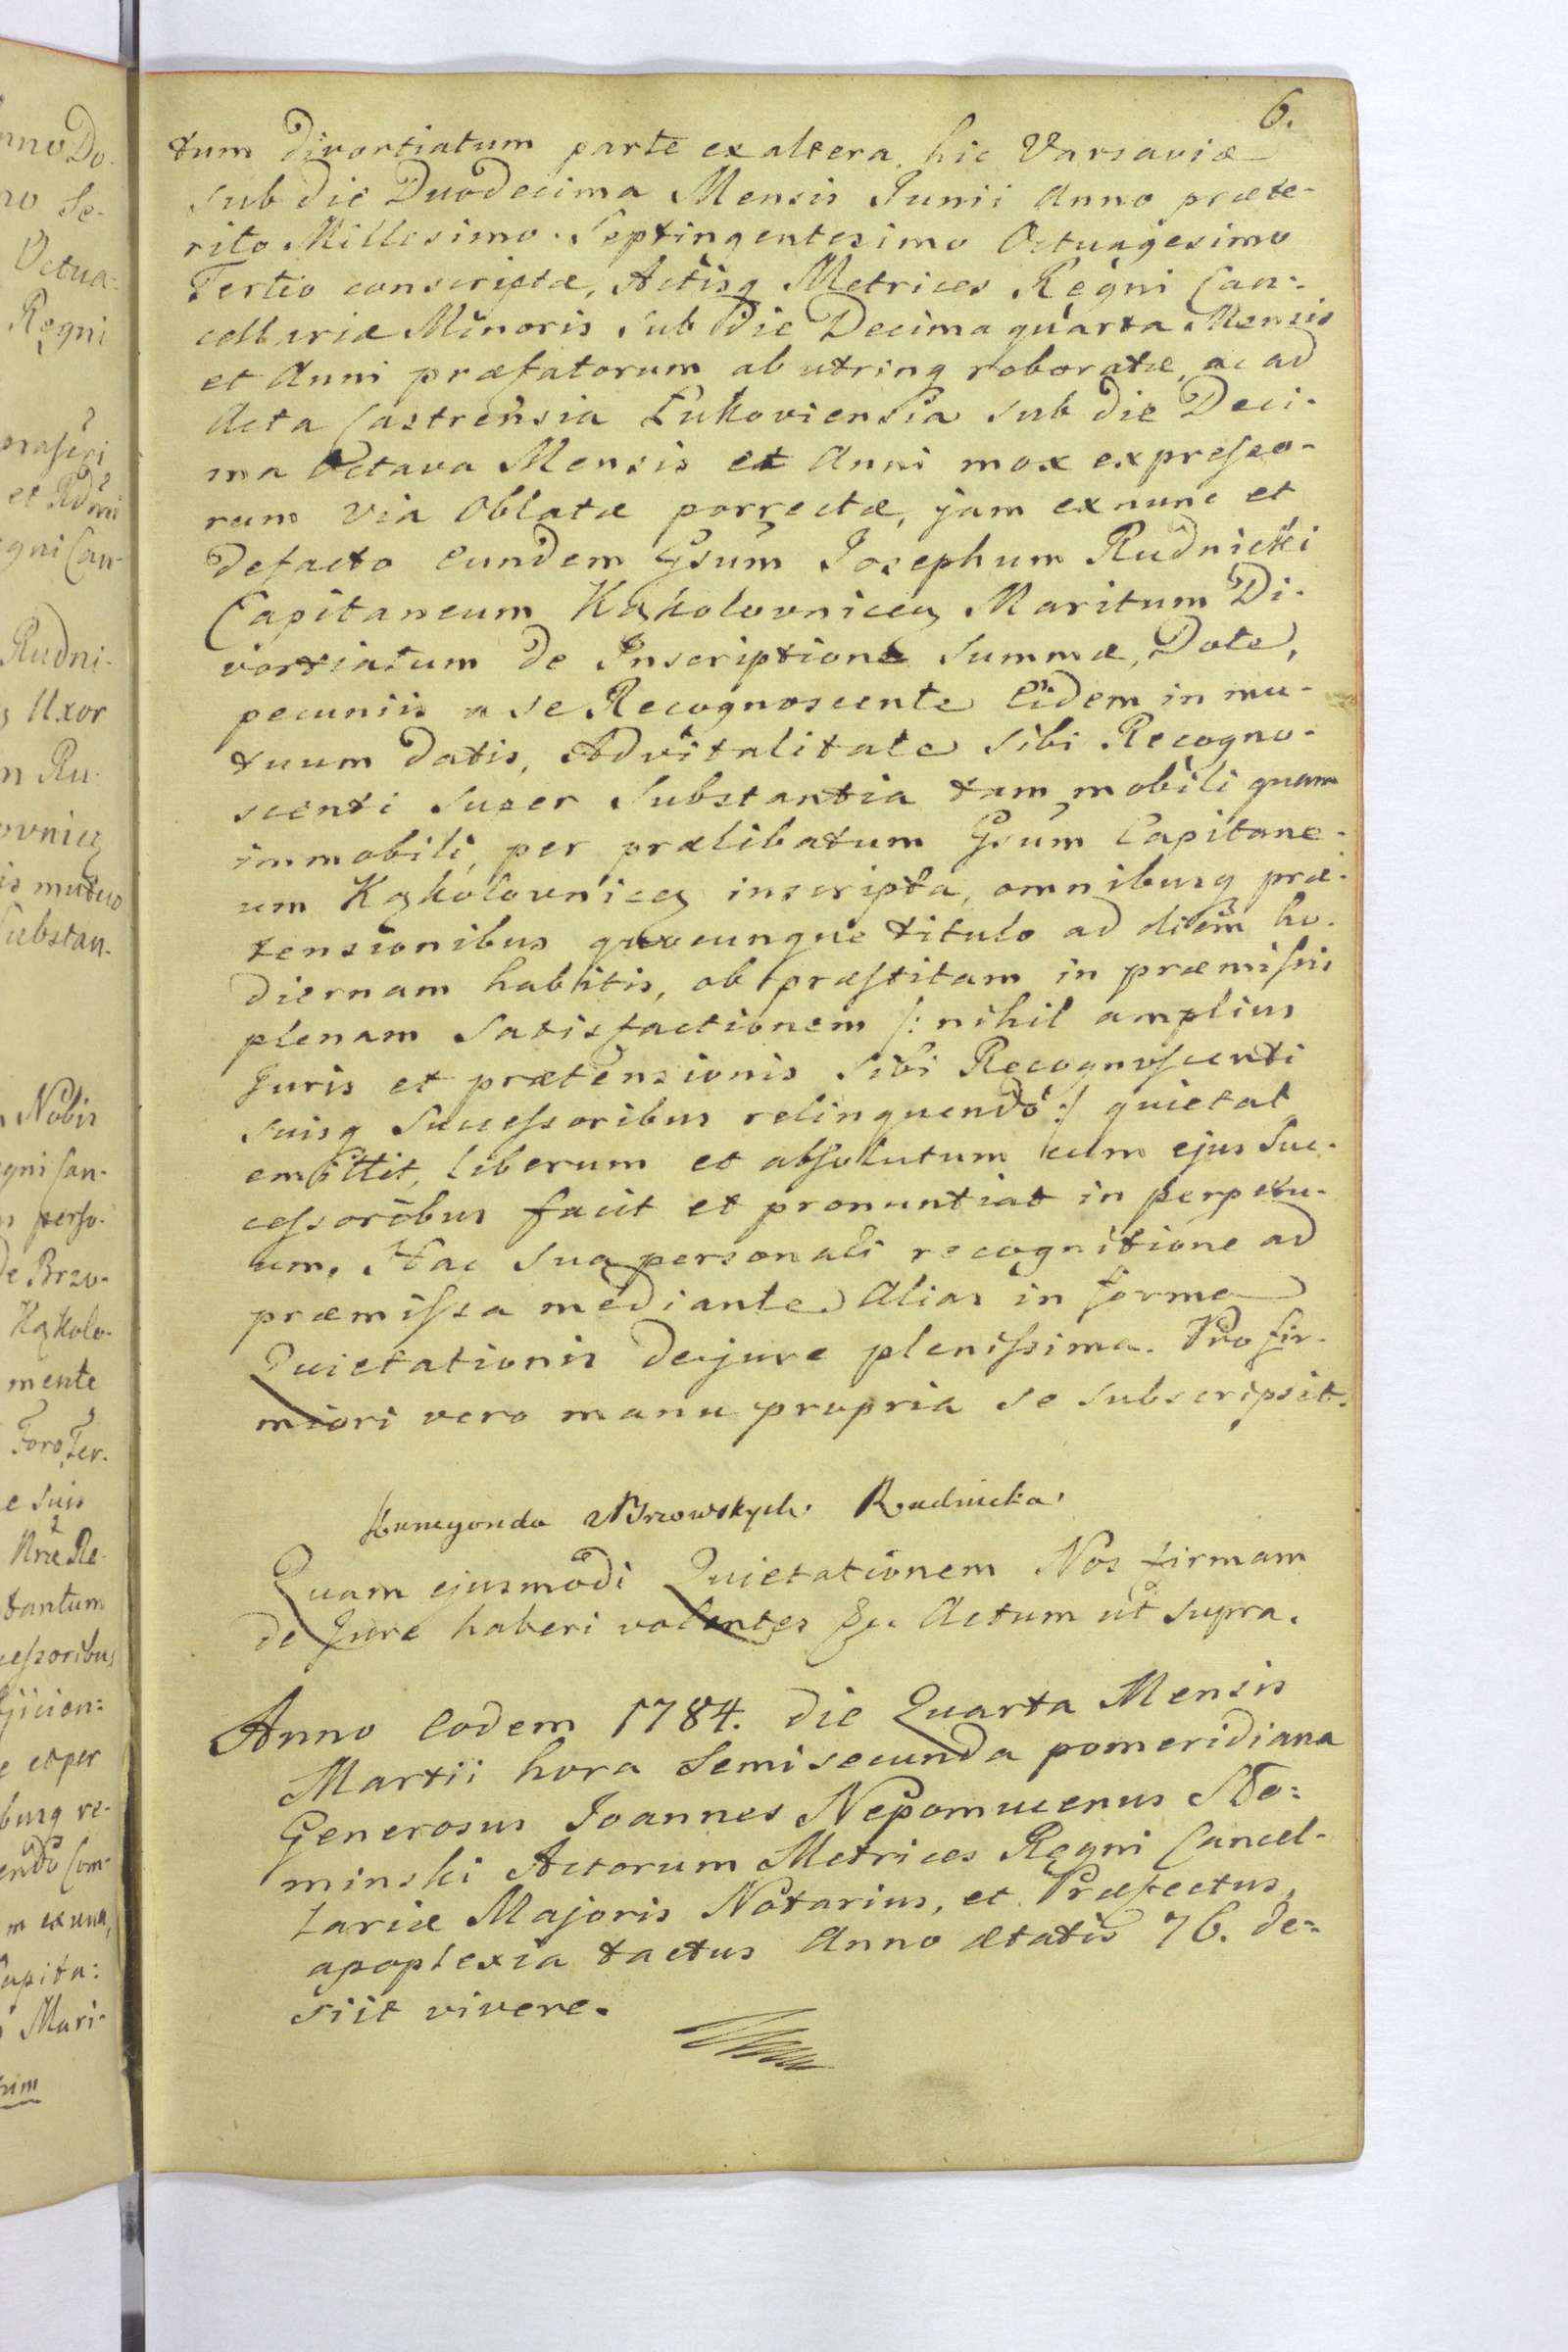 6.
tum divortiatum parte ex altera, hic Varsaviæ
sub die Duodecima Mensis Junii Anno præte-
rito Millesimo Septingentesimo Octuagesimo
Tertio conscriptæ, Actisq Metrices Regni Can:
cellariæ Minoris sub die Decima quarta Mensis
et Anni præfatorum ab utrinq roboratæ, ac ad
Acta Castrensia Łukoviensia sub die Deci-
ma Octava Mensis et Anni mox expreſso-
rum via Oblatæ porrectæ, jam ex nunc et
defacto eundem Gsum Josephum Rudnicki
Capitaneum Kąkolovnicen Maritum Di-
vortiatum de Inscriptione summæ, Dote,
pecuniis a se Recognoscente Eidem in mu-
tuum datis, Advitalitate sibi Recogno-
scenti super Substantia tam mobili quam
immobili, per prælibatum Gsum Capitane-
um Kąkolovnicen inscripta, omnibusq præ-
tensionibus quocunque titulo ad diem ho-
diernam habitis, ob præſtitam in præmiſsis
plenam satisfactionem /: nihil amplius
Juris et prætensionis sibi Recognoſcenti
suisq Succeſsoribus relinquendo :/ quietat
emittit, liberum et abſolutum cum ejus Suc-
ceſsoribus facit et pronuntiat in perpetu-
um. Hac sua personali recognitione ad
præmiſsa mediante Alias in forma
Quietationis de jure pleniſsima. Pro fir-
miori vero manu propria se subscripsit.
Kunegonda z Brzowskych Rudnicka
Quam ejusmodi Quietationem Nos firmam
de Jure haberi volentes &c. Actum ut supra.
Anno Eodem 1784. die Quarta Mensis
Martii hora Semisecunda pomeridiana
Generosus Joannes Nepomucenus Sło=
minski Actorum Metrices Regni Cancel-
lariæ Majoris Notarius, et Præfectus,
apoplexia tactus Anno ætatis 76. de=
siit vivere.